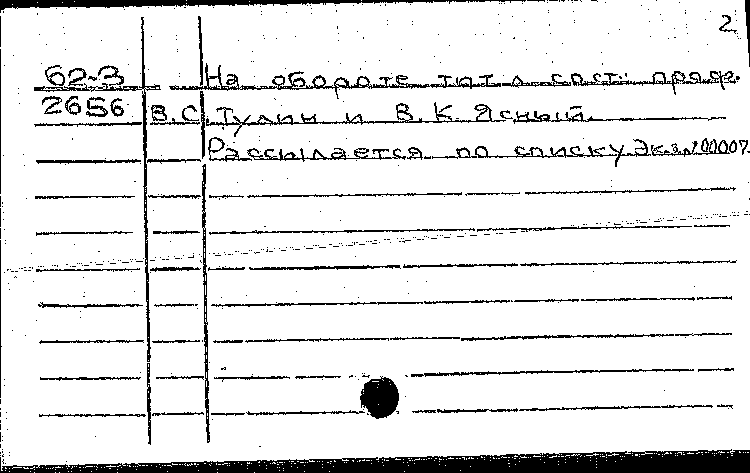 2
62-3 На обороте тит л сост: проф.
2656 В.С. Тулин и В. К. Ясный.
Рассылается по списку. Экз. №00007.